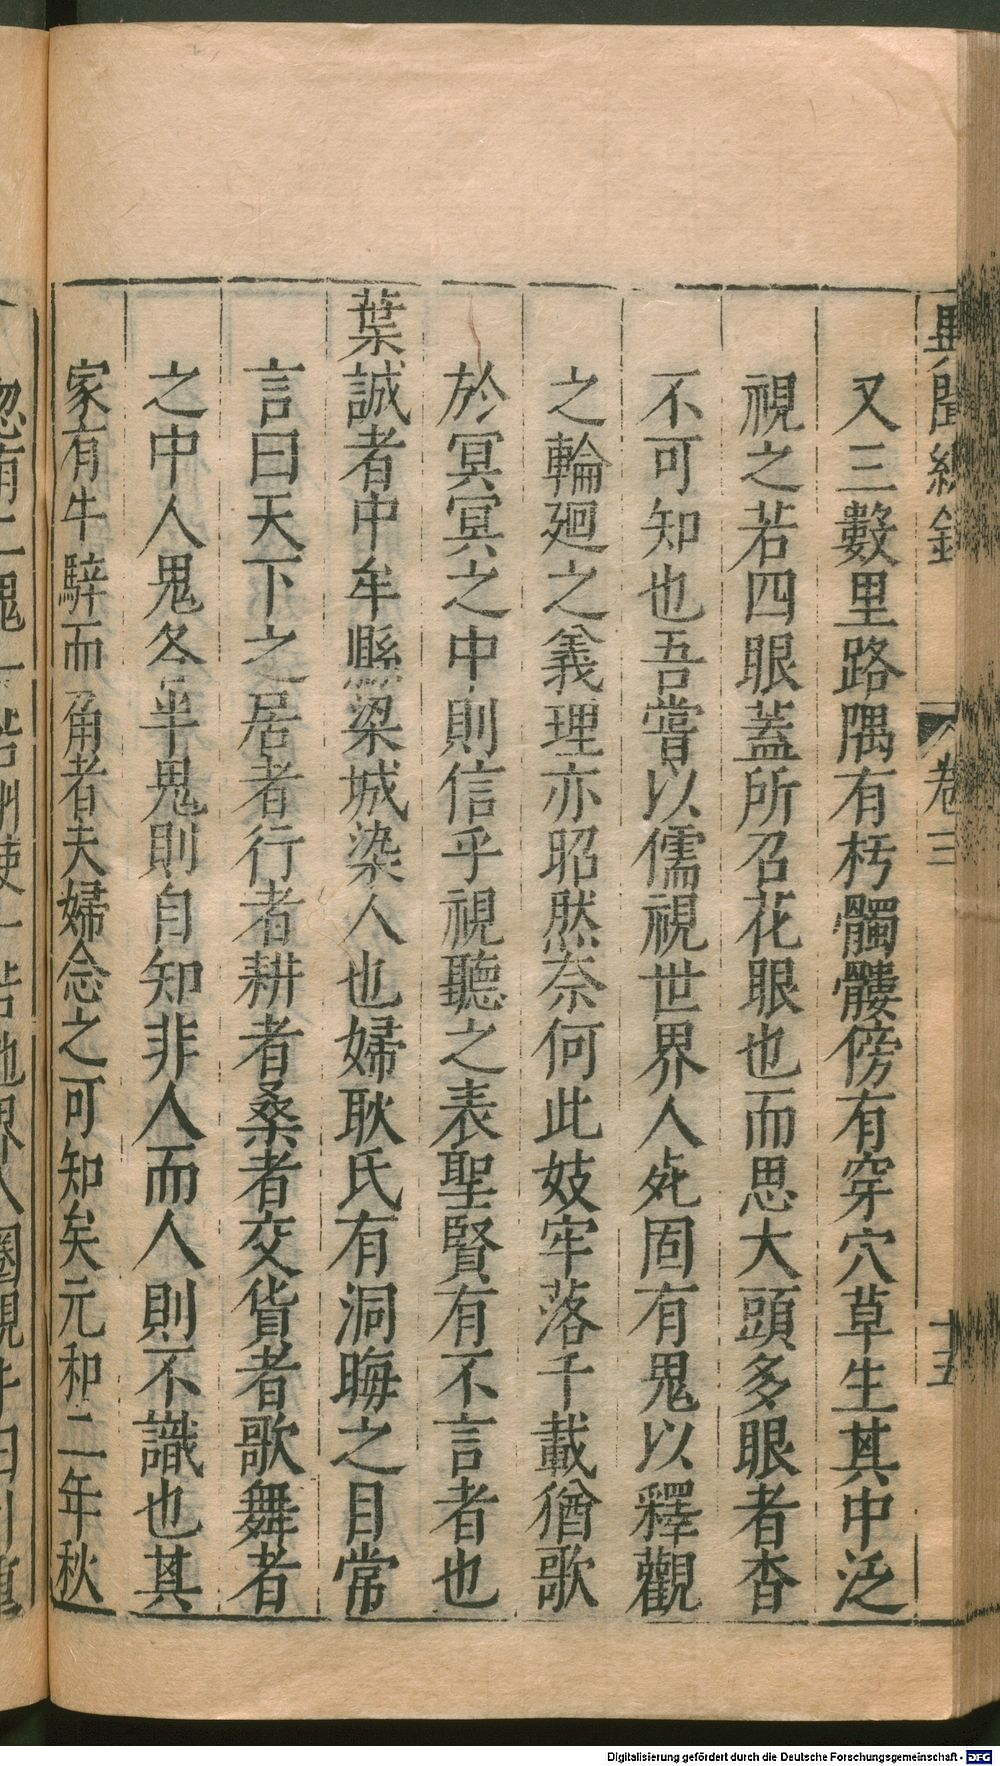 異聞總錄 卷三 十五
又三數里路隅有朽髑髏傍有穿穴草生其中泛
視之若四眼蓋所召花眼也而思大頭多眼者杳
不可知也吾嘗以儒視世界人死固有鬼以釋觀
之輪廻之義理亦昭然奈何此妓牢落千載猶歌
於冥冥之中則信乎視聽之表聖賢有不言者也
葉誠者中牟縣梁城染人也婦耿氏有洞晦之目常
言曰天下之居者行者耕者桑者交貨者歌舞者
之中人鬼各半鬼則自知非人而人則不識也其
家有牛騂而角者夫婦念之可知矣元和二年秋
Digitalisierung gefördert durch die Deutsche Forschungsgemeinschaft - DFG